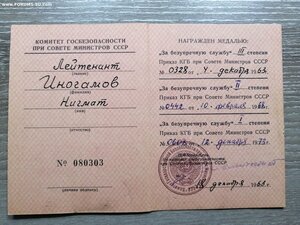 КОМИТЕТ ГОСБЕЗОПАСНОСТИ
ПРИ СОВЕТЕ МИНИСТРОВ СССР
Лейтенант
(звание)
Иногамов
(фамилия)
Нигмат
(имя)
(отчество)
№ 080303
(личная подпись)
НАГРАЖДЕН МЕДАЛЬЮ:
„За безупречную службу" III степени
Приказ КГБ при Совете Министров СССР
№ 0328 от „4" декабря 1963.
„За безупречную службу" II степени
Приказ КГБ при Совете Министров СССР
№ 0442 от „10" 1968.
„За безупречную службу" I степени
Приказ КГБ при Совете Министров СССР
№ от „12" декабря 1973.
18 декабря 1963.